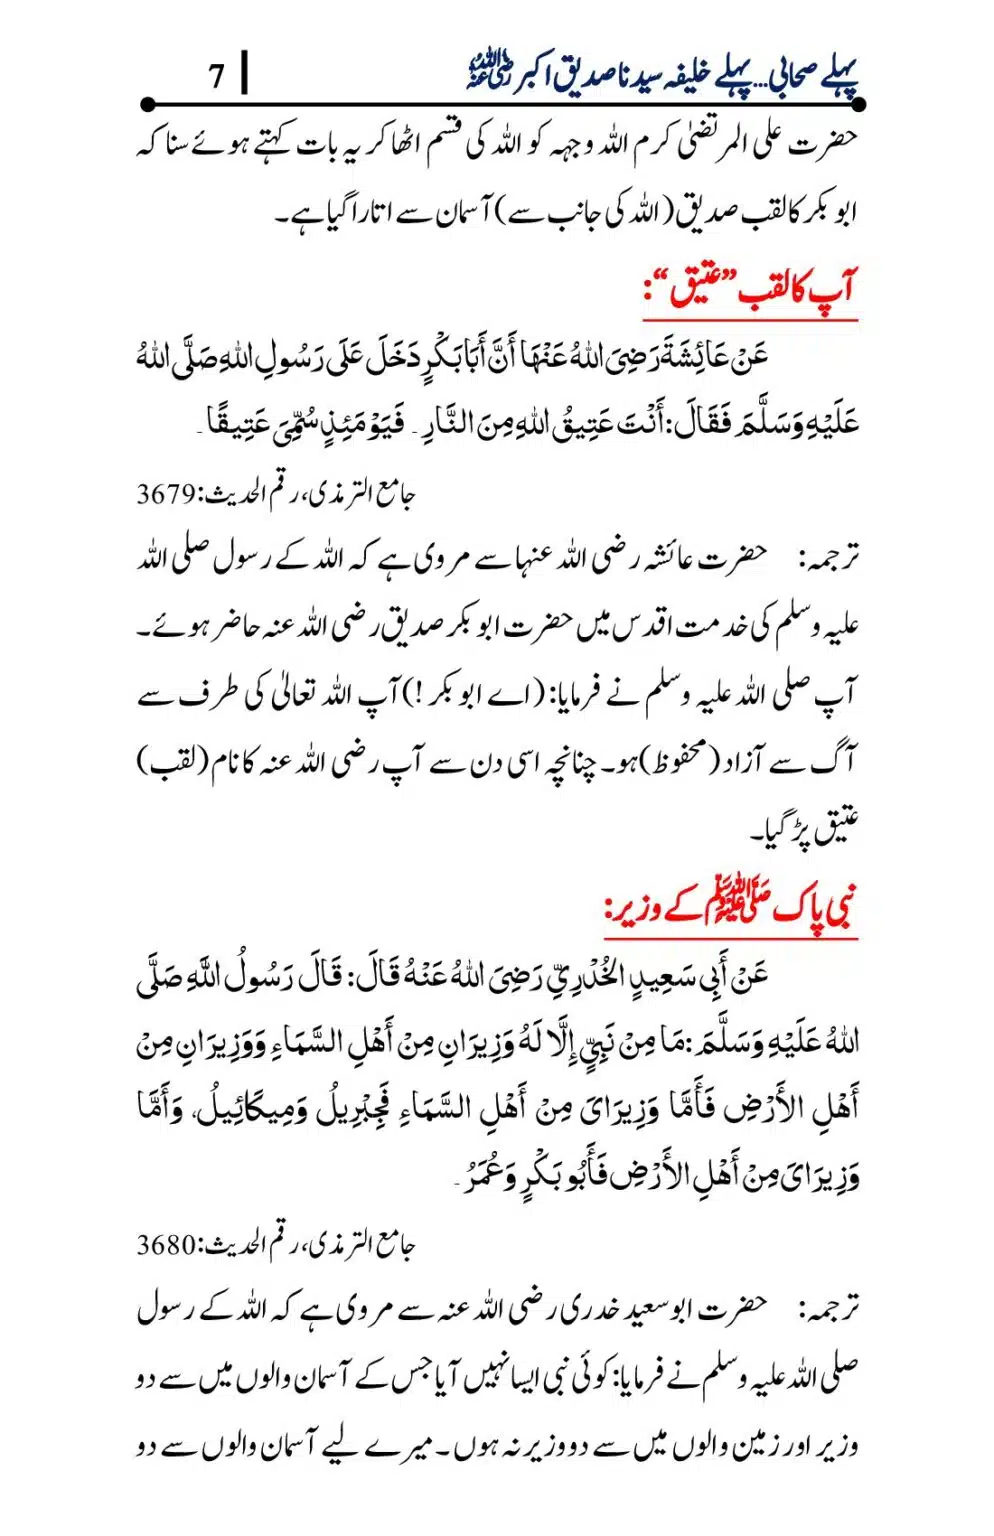 پہلے صحابی...پہلے خلیفہ سیدنا صدیق اکبر رضی اللہ عنہ 7
حضرت علی المرتضیٰ کرم اللہ وجہہ کو اللہ کی قسم اٹھا کر یہ بات کہتے ہوئے سنا کہ
ابو بکر کا لقب صدیق (اللہ کی جانب سے) آسمان سے اتارا گیا ہے۔
آپ کا لقب ”عتیق“:
عَنْ عَائِشَةَ رَضِیَ اللهُ عَنْهَا أَنَّ أَبَا بَكْرٍ دَخَلَ عَلَى رَسُولِ اللهِ صَلَّى اللهُ
عَلَيْهِ وَسَلَّمَ فَقَالَ: أَنْتَ عَتِيقُ اللهِ مِنَ النَّارِ۔ فَيَوْمَئِذٍ سُمِّیَ عَتِيقًا۔
جامع الترمذی، رقم الحدیث: 3679
ترجمہ: حضرت عائشہ رضی اللہ عنہا سے مروی ہے کہ اللہ کے رسول صلی اللہ
علیہ وسلم کی خدمت اقدس میں حضرت ابو بکر صدیق رضی اللہ عنہ حاضر ہوئے۔
آپ صلی اللہ علیہ وسلم نے فرمایا: (اے ابو بکر !) آپ اللہ تعالیٰ کی طرف سے
آگ سے آزاد (محفوظ) ہو۔ چنانچہ اسی دن سے آپ رضی اللہ عنہ کا نام (لقب)
عتیق پڑ گیا۔
نبی پاک ﷺ کے وزیر:
عَنْ أَبِی سَعِيدٍ الخُدْرِیِّ رَضِیَ اللهُ عَنْهُ قَالَ: قَالَ رَسُولُ اللَّهِ صَلَّى
اللهُ عَلَيْهِ وَسَلَّمَ: مَا مِنْ نَبِیٍّ إِلَّا لَهُ وَزِيرَانِ مِنْ أَهْلِ السَّمَاءِ وَوَزِيرَانِ مِنْ
أَهْلِ الأَرْضِ فَأَمَّا وَزِيرَایَ مِنْ أَهْلِ السَّمَاءِ فَجِبْرِيلُ وَمِيكَائِيلُ، وَأَمَّا
وَزِيرَایَ مِنْ أَهْلِ الأَرْضِ فَأَبُو بَكْرٍ وَعُمَرُ۔
جامع الترمذی، رقم الحدیث: 3680
ترجمہ: حضرت ابو سعید خدری رضی اللہ عنہ سے مروی ہے کہ اللہ کے رسول
صلی اللہ علیہ وسلم نے فرمایا: کوئی نبی ایسا نہیں آیا جس کے آسمان والوں میں سے دو
وزیر اور زمین والوں میں سے دو وزیر نہ ہوں۔ میرے لیے آسمان والوں سے دو